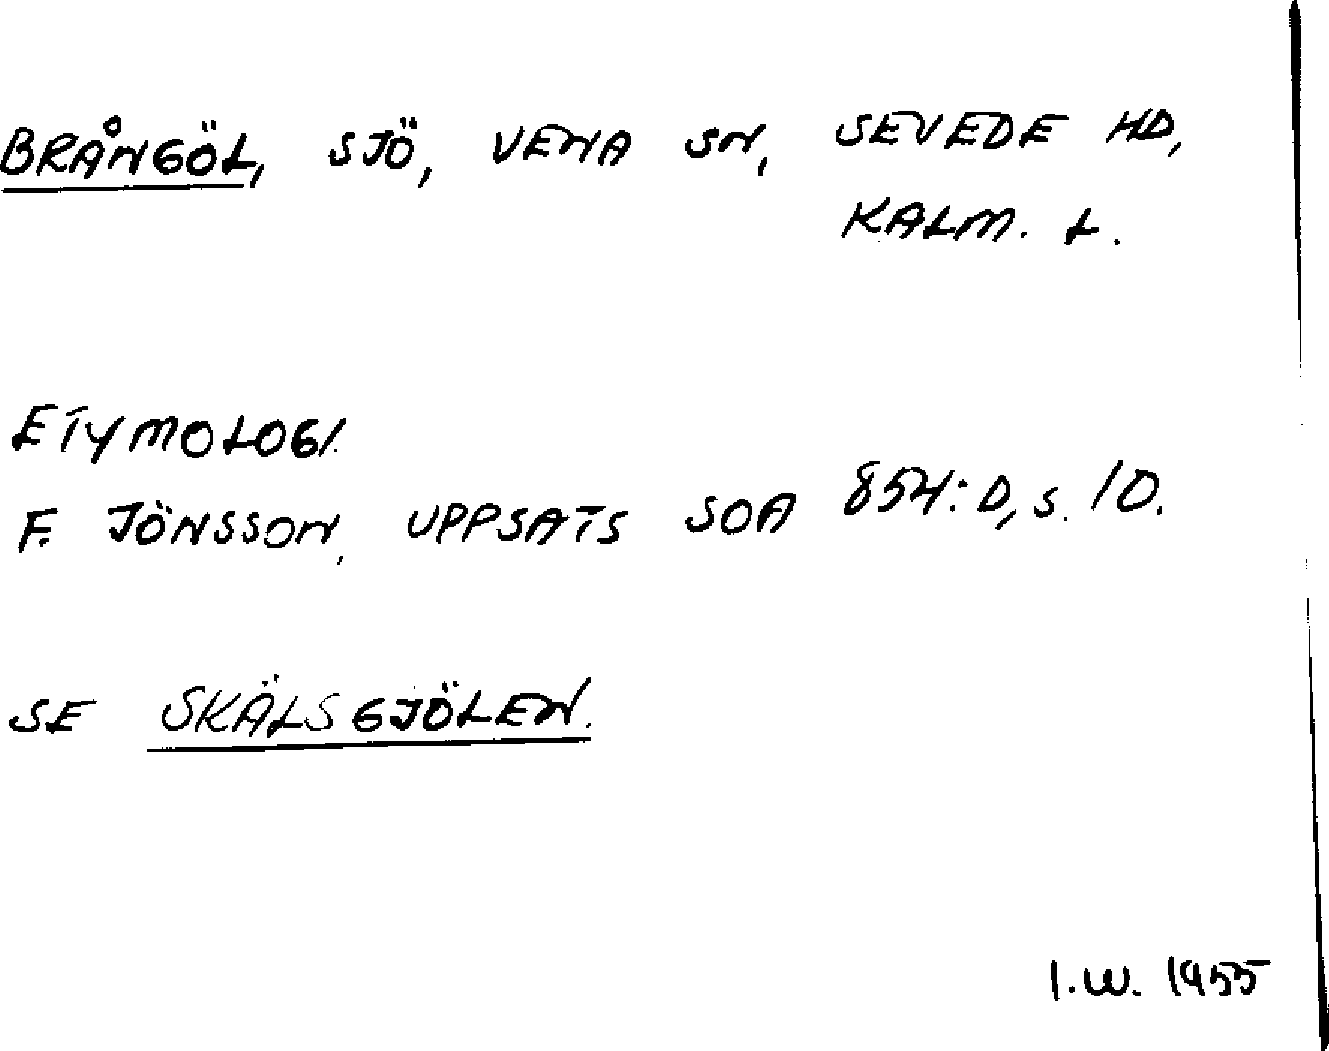 BRÅNGÖL, SJÖ, VENA SN, SEVEDE HD,
KALM. L.
ETYMOLOGI.
F. JÖNSSON, UPPSATS SOA 854:D, S. 10.
SE SKÄLSGJÖLEN.
I.W. 1955